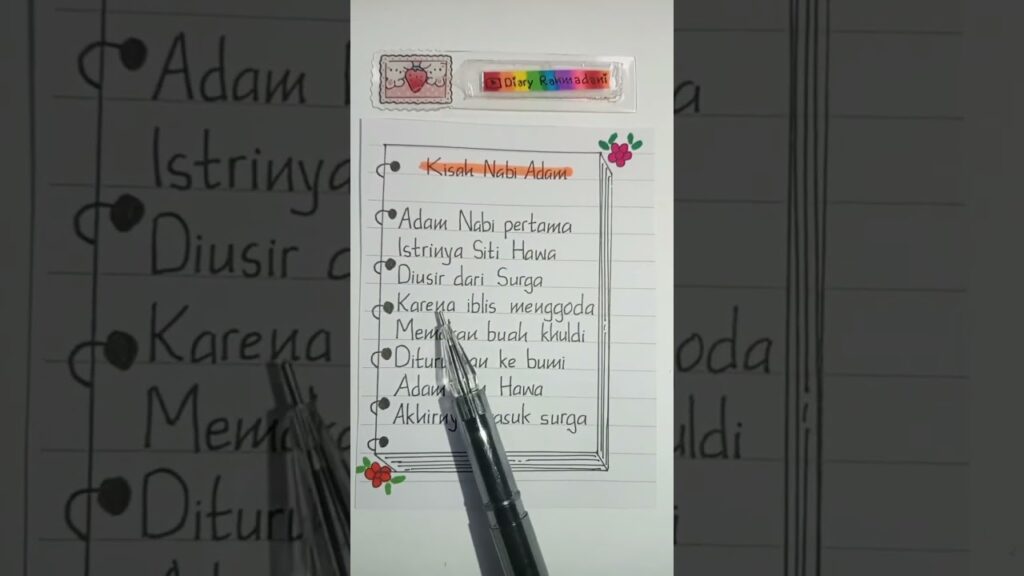 Diary Rahmadani
Kisah Nabi Adam
Adam Nabi pertama
Istrinya Siti Hawa
Diusir dari Surga
Karena iblis menggoda
Memakan buah khuldi
ke bumi
Adam Hawa
surga